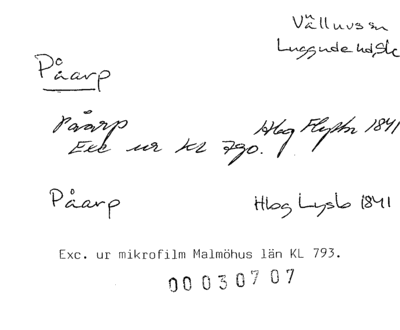 Välluvs sn
Luggude hd, Sk
Påarp
Påarp Hbg 1841
Exc ur KL 790.
Påarp Hbg Lysb 1841
Exc. ur mikrofilm Malmöhus län KL 793.
00030707